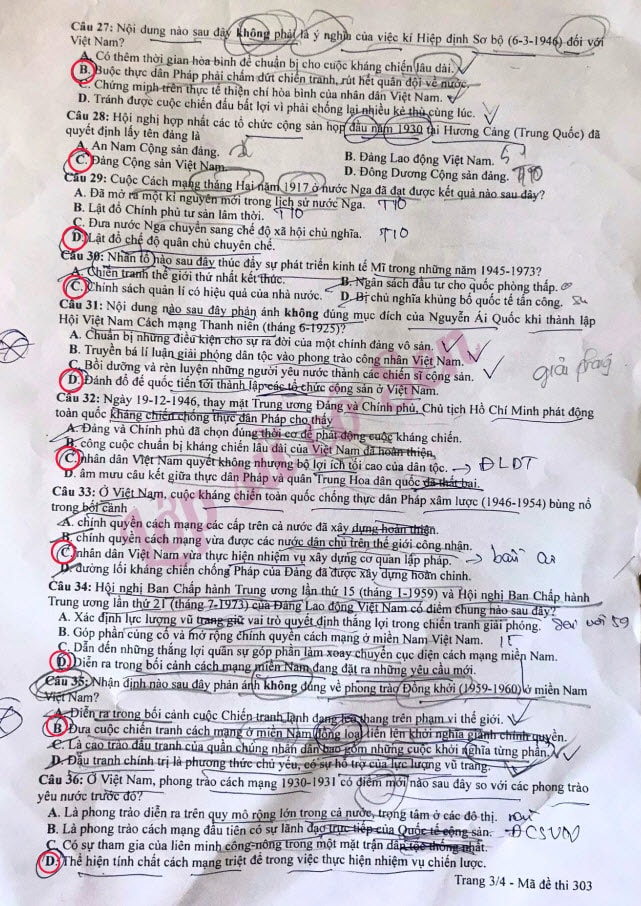 Câu 27: Nội dung nào sau đây không phải là ý nghĩa của việc kí Hiệp định Sơ bộ (6-3-1946) đối với
Việt Nam?
A. Có thêm thời gian hòa bình để chuẩn bị cho cuộc kháng chiến lâu dài.
B. Buộc thực dân Pháp phải chấm dứt chiến tranh, rút hết quân đội về nước.
C. Chứng minh trên thực tế thiện chí hòa bình của nhân dân Việt Nam.
D. Tránh được cuộc chiến đấu bất lợi vì phải chống lại nhiều kẻ thù cùng lúc.
Câu 28: Hội nghị hợp nhất các tổ chức cộng sản họp đầu năm 1930 tại Hương Cảng (Trung Quốc) đã
quyết định lấy tên đảng là
A. An Nam Cộng sản đảng. B. Đảng Lao động Việt Nam.
C. Đảng Cộng sản Việt Nam. D. Đông Dương Cộng sản đảng.
Câu 29: Cuộc Cách mạng tháng Hai năm 1917 ở nước Nga đã đạt được kết quả nào sau đây?
A. Đã mở ra một kỉ nguyên mới trong lịch sử nước Nga. T10
B. Lật đổ Chính phủ tư sản lâm thời. T10
C. Đưa nước Nga chuyển sang chế độ xã hội chủ nghĩa. T10
D. Lật đổ chế độ quân chủ chuyên chế.
Câu 30: Nhân tố nào sau đây thúc đẩy sự phát triển kinh tế Mĩ trong những năm 1945-1973?
A. Chiến tranh thế giới thứ nhất kết thúc. B. Ngân sách đầu tư cho quốc phòng thấp.
C. Chính sách quản lí có hiệu quả của nhà nước. D. Bị chủ nghĩa khủng bố quốc tế tấn công.
Câu 31: Nội dung nào sau đây phản ánh không đúng mục đích của Nguyễn Ái Quốc khi thành lập
Hội Việt Nam Cách mạng Thanh niên (tháng 6-1925)?
A. Chuẩn bị những điều kiện cho sự ra đời của một chính đảng vô sản.
B. Truyền bá lí luận giải phóng dân tộc vào phong trào công nhân Việt Nam.
C. Bồi dưỡng và rèn luyện những người yêu nước thành các chiến sĩ cộng sản. giải phóng
D. Đánh đổ đế quốc tiến tới thành lập các tổ chức cộng sản ở Việt Nam.
Câu 32: Ngày 19-12-1946, thay mặt Trung ương Đảng và Chính phủ, Chủ tịch Hồ Chí Minh phát động
toàn quốc kháng chiến chống thực dân Pháp cho thấy
A. Đảng và Chính phủ đã chọn đúng thời cơ để phát động cuộc kháng chiến.
B. công cuộc chuẩn bị kháng chiến lâu dài của Việt Nam đã hoàn thiện.
C. nhân dân Việt Nam quyết không nhượng bộ lợi ích tối cao của dân tộc. → ĐLDT
D. âm mưu câu kết giữa thực dân Pháp và quân Trung Hoa dân quốc đã thất bại.
Câu 33: Ở Việt Nam, cuộc kháng chiến toàn quốc chống thực dân Pháp xâm lược (1946-1954) bùng nổ
trong bối cảnh
A. chính quyền cách mạng các cấp trên cả nước đã xây dựng hoàn thiện.
B. chính quyền cách mạng vừa được các nước dân chủ trên thế giới công nhận.
C. nhân dân Việt Nam vừa thực hiện nhiệm vụ xây dựng cơ quan lập pháp. → bầu cử
D. đường lối kháng chiến chống Pháp của Đảng đã được xây dựng hoàn chỉnh.
Câu 34: Hội nghị Ban Chấp hành Trung ương lần thứ 15 (tháng 1-1959) và Hội nghị Ban Chấp hành
Trung ương lần thứ 21 (tháng 7-1973) của Đảng Lao động Việt Nam có điểm chung nào sau đây?
A. Xác định lực lượng vũ trang giữ vai trò quyết định thắng lợi trong chiến tranh giải phóng.
B. Góp phần củng cố và mở rộng chính quyền cách mạng ở miền Nam Việt Nam. 15
C. Dẫn đến những thắng lợi quân sự góp phần làm xoay chuyển cục diện cách mạng miền Nam.
D. Diễn ra trong bối cảnh cách mạng miền Nam đang đặt ra những yêu cầu mới.
Câu 35: Nhận định nào sau đây phản ánh không đúng về phong trào Đồng khởi (1959-1960) ở miền Nam
Việt Nam?
A. Diễn ra trong bối cảnh cuộc Chiến tranh lạnh đang leo thang trên phạm vi thế giới.
B. Đưa cuộc chiến tranh cách mạng ở miền Nam đồng loạt tiến lên khởi nghĩa giành chính quyền.
C. Là cao trào đấu tranh của quần chúng nhân dân bao gồm những cuộc khởi nghĩa từng phần.
D. Đấu tranh chính trị là phương thức chủ yếu, có sự hỗ trợ của lực lượng vũ trang.
Câu 36: Ở Việt Nam, phong trào cách mạng 1930-1931 có điểm mới nào sau đây so với các phong trào
yêu nước trước đó?
A. Là phong trào diễn ra trên quy mô rộng lớn trong cả nước, trọng tâm ở các đô thị.
B. Là phong trào cách mạng đầu tiên có sự lãnh đạo trực tiếp của Quốc tế cộng sản. ĐCSVN
C. Có sự tham gia của liên minh công-nông trong một mặt trận dân tộc thống nhất.
D. Thể hiện tính chất cách mạng triệt để trong việc thực hiện nhiệm vụ chiến lược.
Trang 3/4 - Mã đề thi 303